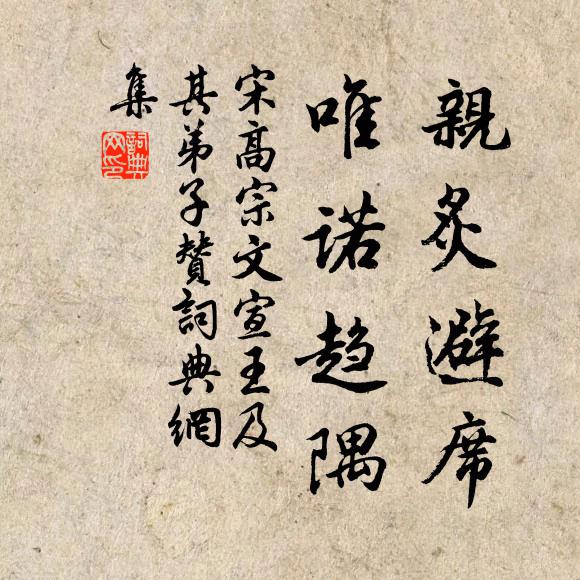 親炙避席
唯諾趨隅
宋高宗文宣王及
其弟子贊詞典網
集
詞典
网印